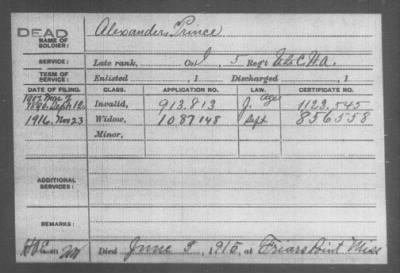 DEAD
Alexanders, Prince
NAME OF SOLDIER:
SERVICE: Late rank, Co. I, 5 Reg't U.S.C.H.A.
TERM OF SERVICE: Enlisted , 1 Discharged , 1
DATE OF FILING. CLASS. APPLICATION NO. LAW. CERTIFICATE NO.
1907 Mar 7
1890. Sept 12. Invalid, 913.813 J. Age 1123.545
1916, Nov 23 Widow, 1087148 Sept 856558
Minor,
ADDITIONAL SERVICES:
REMARKS:
Died June 9, 1915, at Friars Point Miss